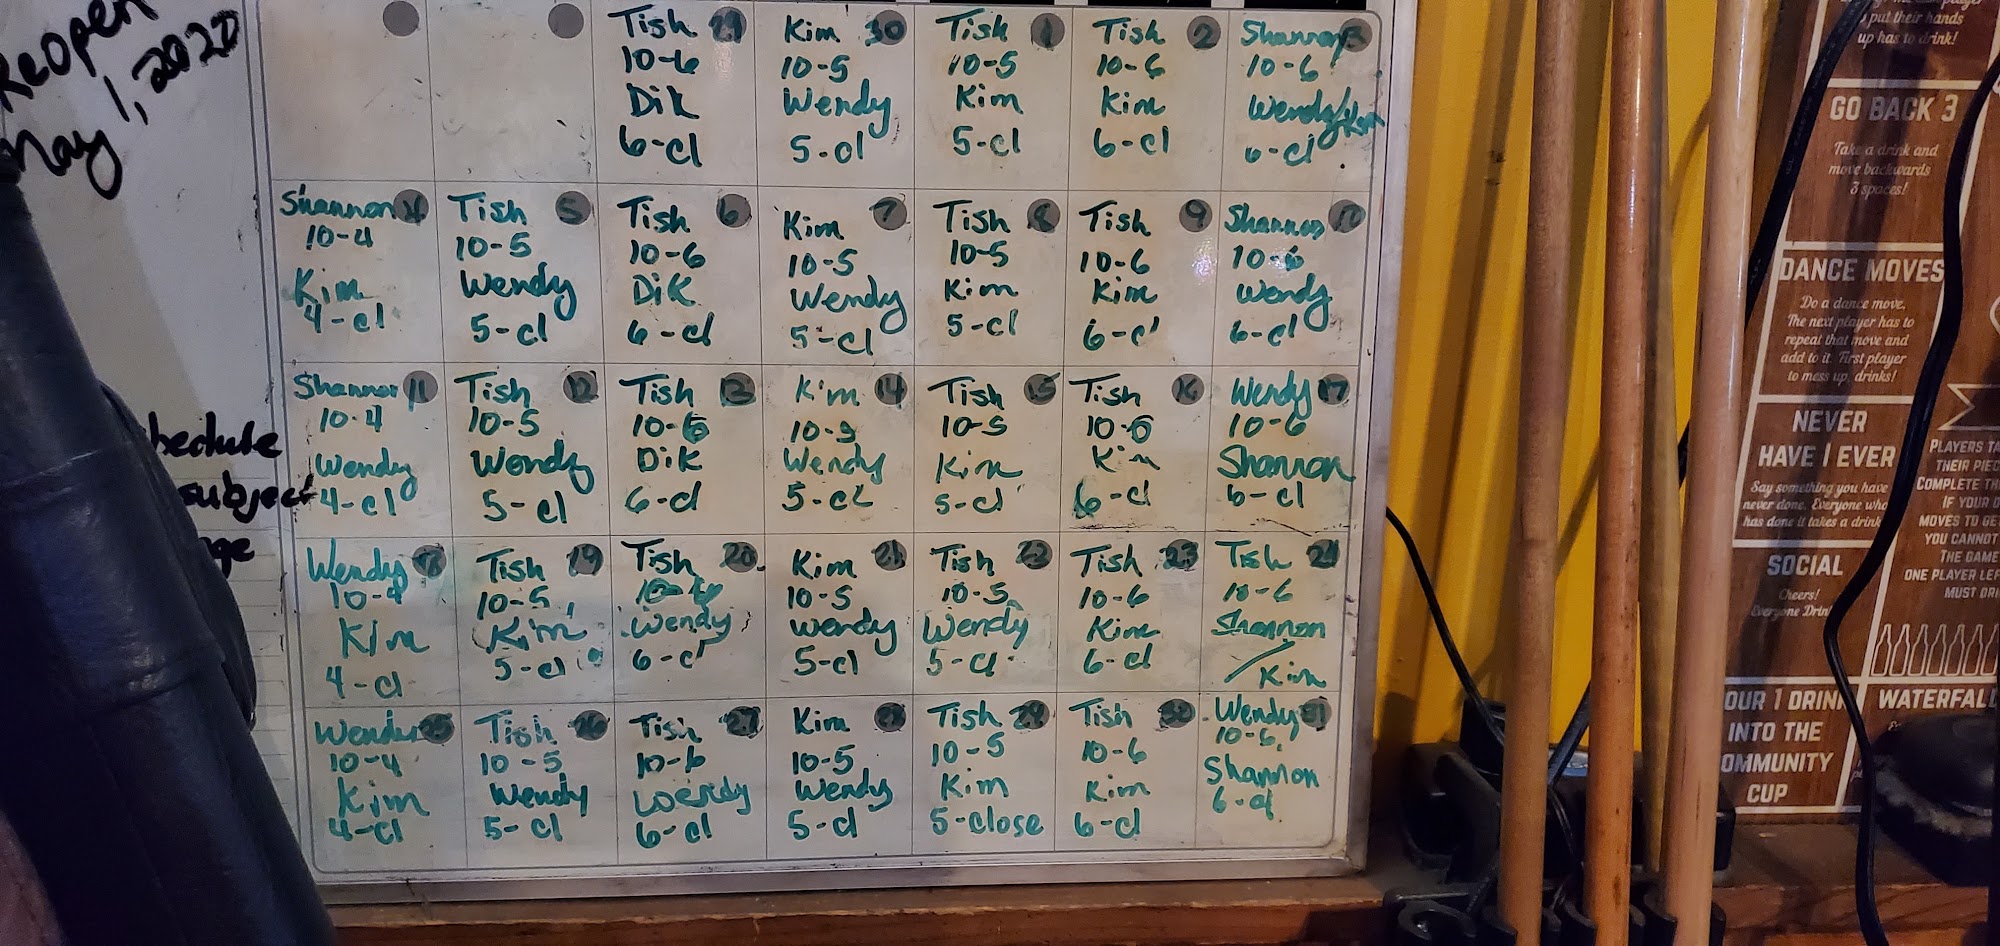 ReOpen
May 1, 2020
Tish 29
10-6
Dik
6-cl
Kim 30
10-5
Wendy
5-cl
Tish 1
10-5
Kim
5-cl
Tish 2
10-6
Kim
6-cl
Shannon 3
10-6
Wendy/Kim
6-cl
Shannon 4
10-4
Kim
4-cl
Tish 5
10-5
Wendy
5-cl
Tish 6
10-6
Dik
6-cl
Kim 7
10-5
Wendy
5-cl
Tish 8
10-5
Kim
5-cl
Tish 9
10-6
Kim
6-cl
Shannon 10
10-6
Wendy
6-cl
Shannon 11
10-4
Wendy
4-cl
Tish 12
10-5
Wendy
5-cl
Tish 13
10-6
Dik
6-cl
Kim 14
10-5
Wendy
5-cl
Tish 15
10-5
Kim
5-cl
Tish 16
10-6
Kim
6-cl
Wendy 17
10-6
Shannon
6-cl
hedule
subject
nge
Wendy 18
10-4
Kim
4-cl
Tish 19
10-5
Kim
5-cl
Tish 20
10-6
Wendy
6-cl
Kim 21
10-5
Wendy
5-cl
Tish 22
10-5
Wendy
5-cl
Tish 23
10-6
Kim
6-cl
Tish 24
10-6
Shannon
/Kim
Wendy 25
10-4
Kim
4-cl
Tish 26
10-5
Wendy
5-cl
Tish 27
10-6
Wendy
6-cl
Kim 28
10-5
Wendy
5-cl
Tish 29
10-5
Kim
5-close
Tish 30
10-6
Kim
6-cl
Wendy 31
10-6
Shannon
6-cl
put their hands
up has to drink!
GO BACK 3
Take a drink and
move backwards
3 spaces!
DANCE MOVES
Do a dance move.
The next player has to
repeat that move and
add to it. First player
to mess up, drinks!
NEVER
HAVE I EVER
Say something you have
never done. Everyone who
has done it takes a drink
SOCIAL
Cheers!
Everyone Drin
OUR 1 DRINK
INTO THE
OMMUNITY
CUP
PLAYERS TA
THEIR PIEC
COMPLETE TH
IF YOUR O
MOVES TO GE
YOU CANNOT
THE GAME
ONE PLAYER LEF
MUST DRI
WATERFALL